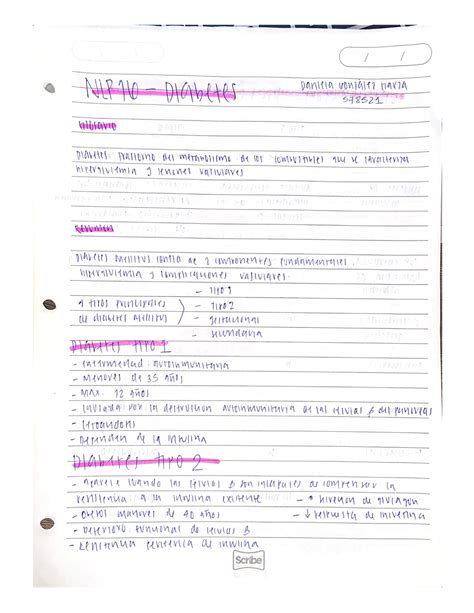 NLP10 - Diabetes
Daniela González Narza
578521
Glosario
Diabetes: Trastorno del metabolismo de los combustibles que se caracteriza
hiperglucemia y lesiones vasculares
Resumen
Diabetes Mellitus consta de 2 componentes fundamentales:
hiperglucemia y complicaciones vasculares.
4 tipos principales
de diabetes mellitus
- tipo 1
- tipo 2
- gestacional
- secundaria
Diabetes tipo 1
- Enfermedad autoinmunitaria
- Menores de 35 años
- Max. 12 años
- causada por la destruccion autoinmunitaria de las celulas β del pancreas
- Dependen de la insulina
Diabetes tipo 2
- Aparece cuando las celulas β son incapaces de compensar la
resistencia a la insulina existente
- ↑ de glucagon
- ↓ respuesta de incretina
- Obesos mayores de 40 años
- Deterioro funcional de celulas β
- Resistencia periferica de insulina
Scribe